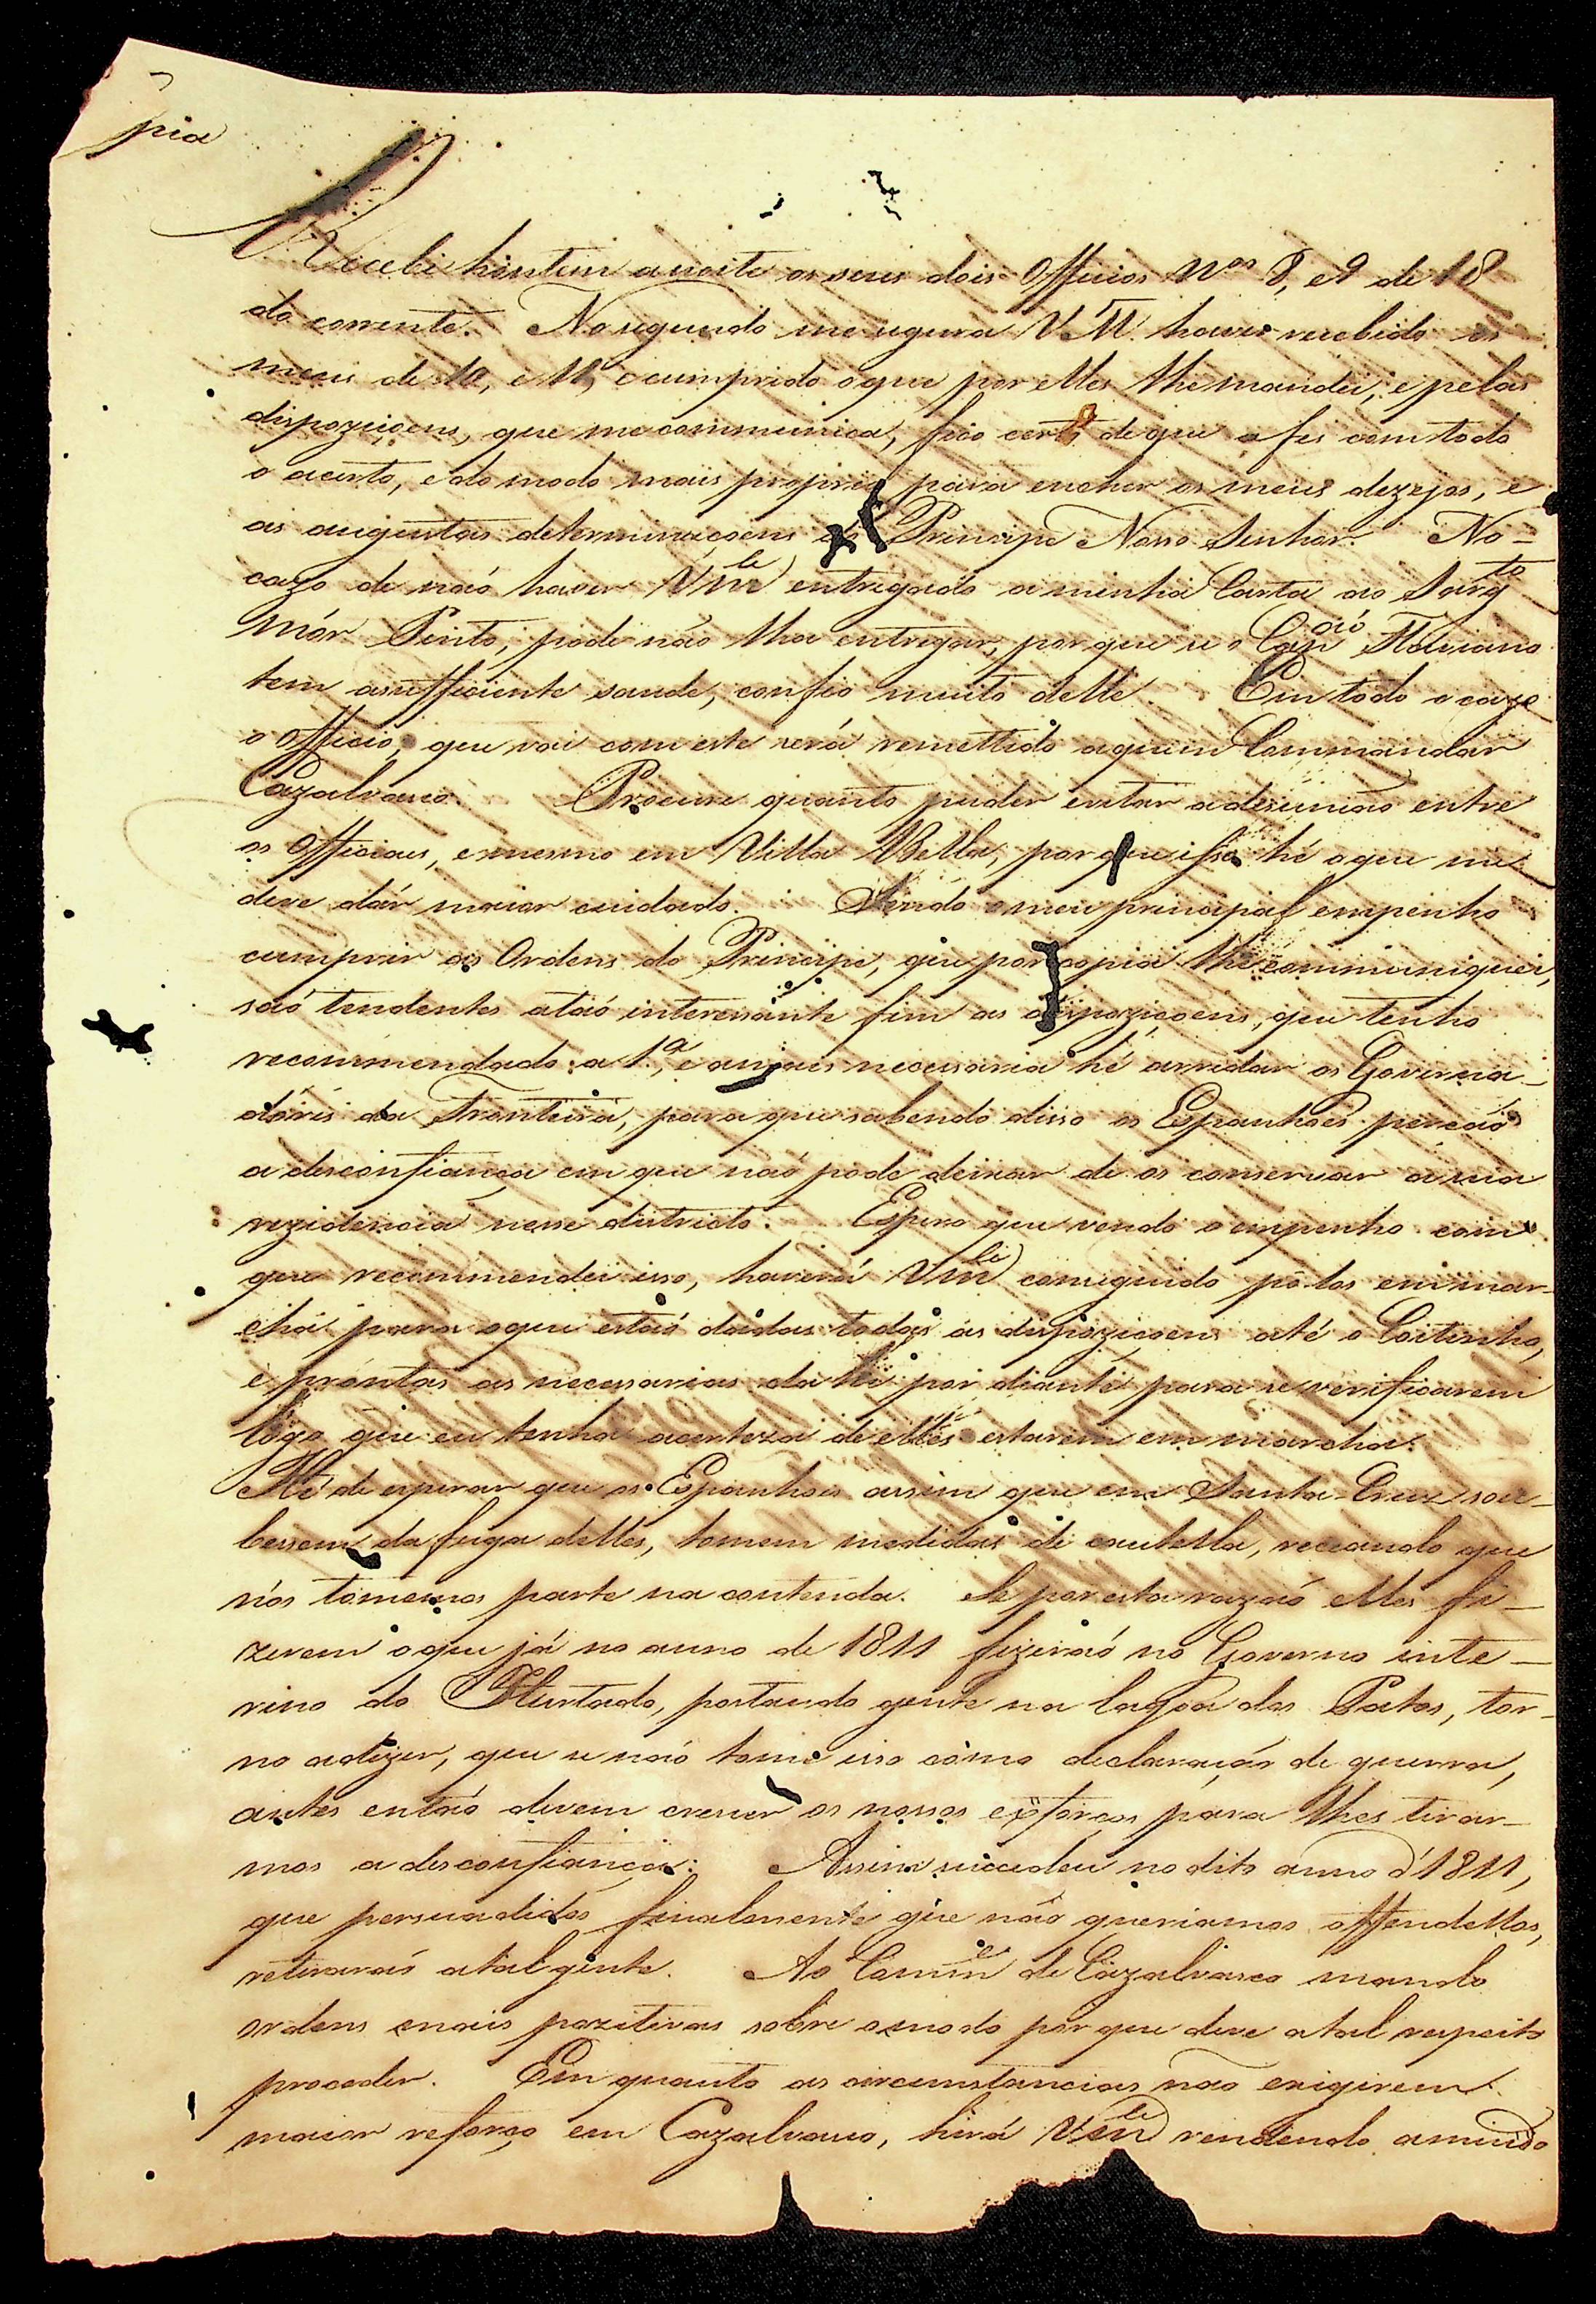 pia
Recebi hontem a noite os seus dois Officios Nos 8, e 9 de 18
do corrente. No segundo me segura V. M. haver recebido os
meus de 10, e 11, e cumprido o que por elles lhe mandei, e pelas
dispoziçoens, que me communica, fico certo de que o fes com todo
o acerto, e do modo mais proprio para encher os meus dezejos, e
as augustas determinaçoens do Principe Nosso Senhor. No-
cazo de naó haver Vm.ce entregado a minha Carta ao Sargto
Mór Pinto, pode não lha entregar, por que se o Capaó Floriano
tem a sufficiente saude, confio muito delle. Em todo o cazo
o Officio, que vai com este será remettido a quem Commandar
Cazalvasco. Procure quanto puder evitar a desuniaó entre
os Officiaes, e mesmo em Villa Bella, por que isso hé o que me
deve dár maior cuidado. Sendo o meu principal empenho
cumprir as Ordens do Principe, que por copia lhe communiquei,
saó tendentes a taó interessante fim as dispoziçoens, que tenho
recommendado: a 1.a, e a mais necessaria hé arredar os Governa-
dores da Fronteira, para que sabendo disso os Espanhoes percaó
a desconfiança em que naó pode deixar de os conservar a sua
rezidencia nesse districto. Espero que vendo o empenho com
que recommendei isso, haverá Vm.ce conseguido pô-los em mar-
cha para o que estaó dadas todas as dispoziçoens até o Coitinho,
e promtas as necessarias dahi por diante para se verificarem
lógo que eu tenha a certeza de elles estarem em marcha.
Hé de esperar que os Espanhoes assim que em Santa-Cruz sou-
bessem da fuga delles, tomem medidas de cautella, receando que
nós tomemos parte na contenda. Se por esta razaó elles fi-
zerem o que já no anno de 1811 fizeraó no Governo inte-
rino do Hurtado, postando gente na lagoa dos Patos, tor-
no a dizer, que se naó tome isso cômo declaraçaó de guerra,
antes entaó devem crescer os nossos esforços para lhes tirar-
mos a desconfiança. Assim succedeu no dito anno d'1811,
que persuadidos finalmente que não queriamos offendellos,
retiraraó a tal gente. Ao Comme de Cazalvasco mando
ordens mais pozitivas sobre o modo por que deve a tal respeito
proceder. Em quanto as circumstancias nao exigirem
maior reforço em Cazalvasco, hirá Vm.ce rendendo amiudo